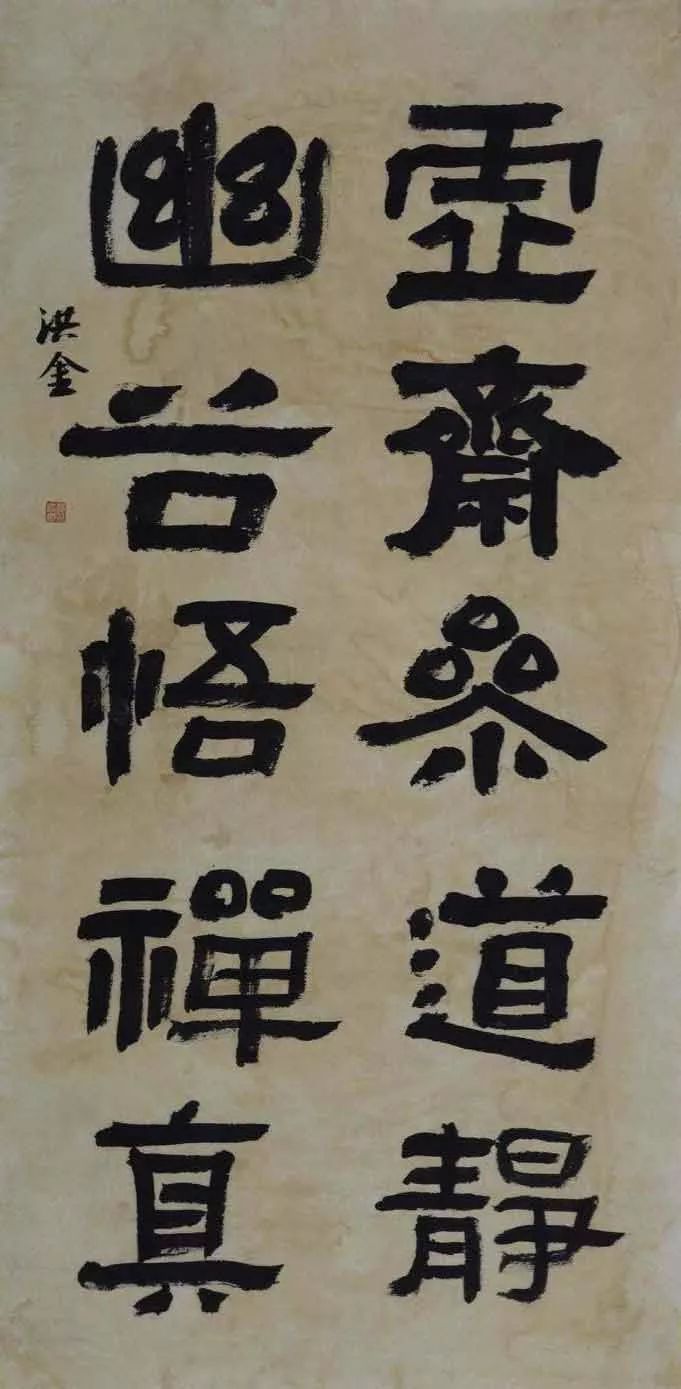 虛齋參道靜
幽谷悟禪真
洪金